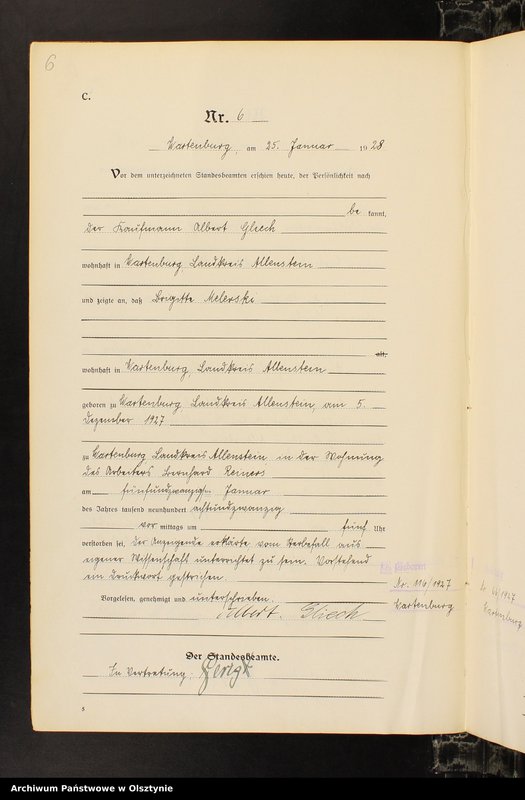 6
C.
Nr. 6
Wartenburg, am 25. Januar 1928
Vor dem unterzeichneten Standesbeamten erschien heute, der Persönlichkeit nach
be kannt,
der Kaufmann Albert Gliech
wohnhaft in Wartenburg Landkreis Allenstein
und zeigte an, daß Brigitte Melerski
alt,
wohnhaft in Wartenburg, Landkreis Allenstein
geboren zu Wartenburg Landkreis Allenstein, am 5.
Dezember 1927
zu Wartenburg Landkreis Allenstein, in der Wohnung
des Arbeiters Bernhard Reiners
am fünfundzwanzigsten Januar
des Jahres tausend neunhundert achtundzwanzig
vor mittags um fünf Uhr
verstorben sei. Der Anzeigende erklärte vom Sterbefall aus
eigener Wissenschaft unterrichtet zu sein. Vorstehend
ein Druckwort gestrichen.
Vorgelesen, genehmigt und unterschrieben.
Albert Gliech
Der Standesbeamte.
In Vertretung.
5
Nr. 116/1927
Wartenburg
Wartenburg
Archiwum Państwowe w Olsztynie